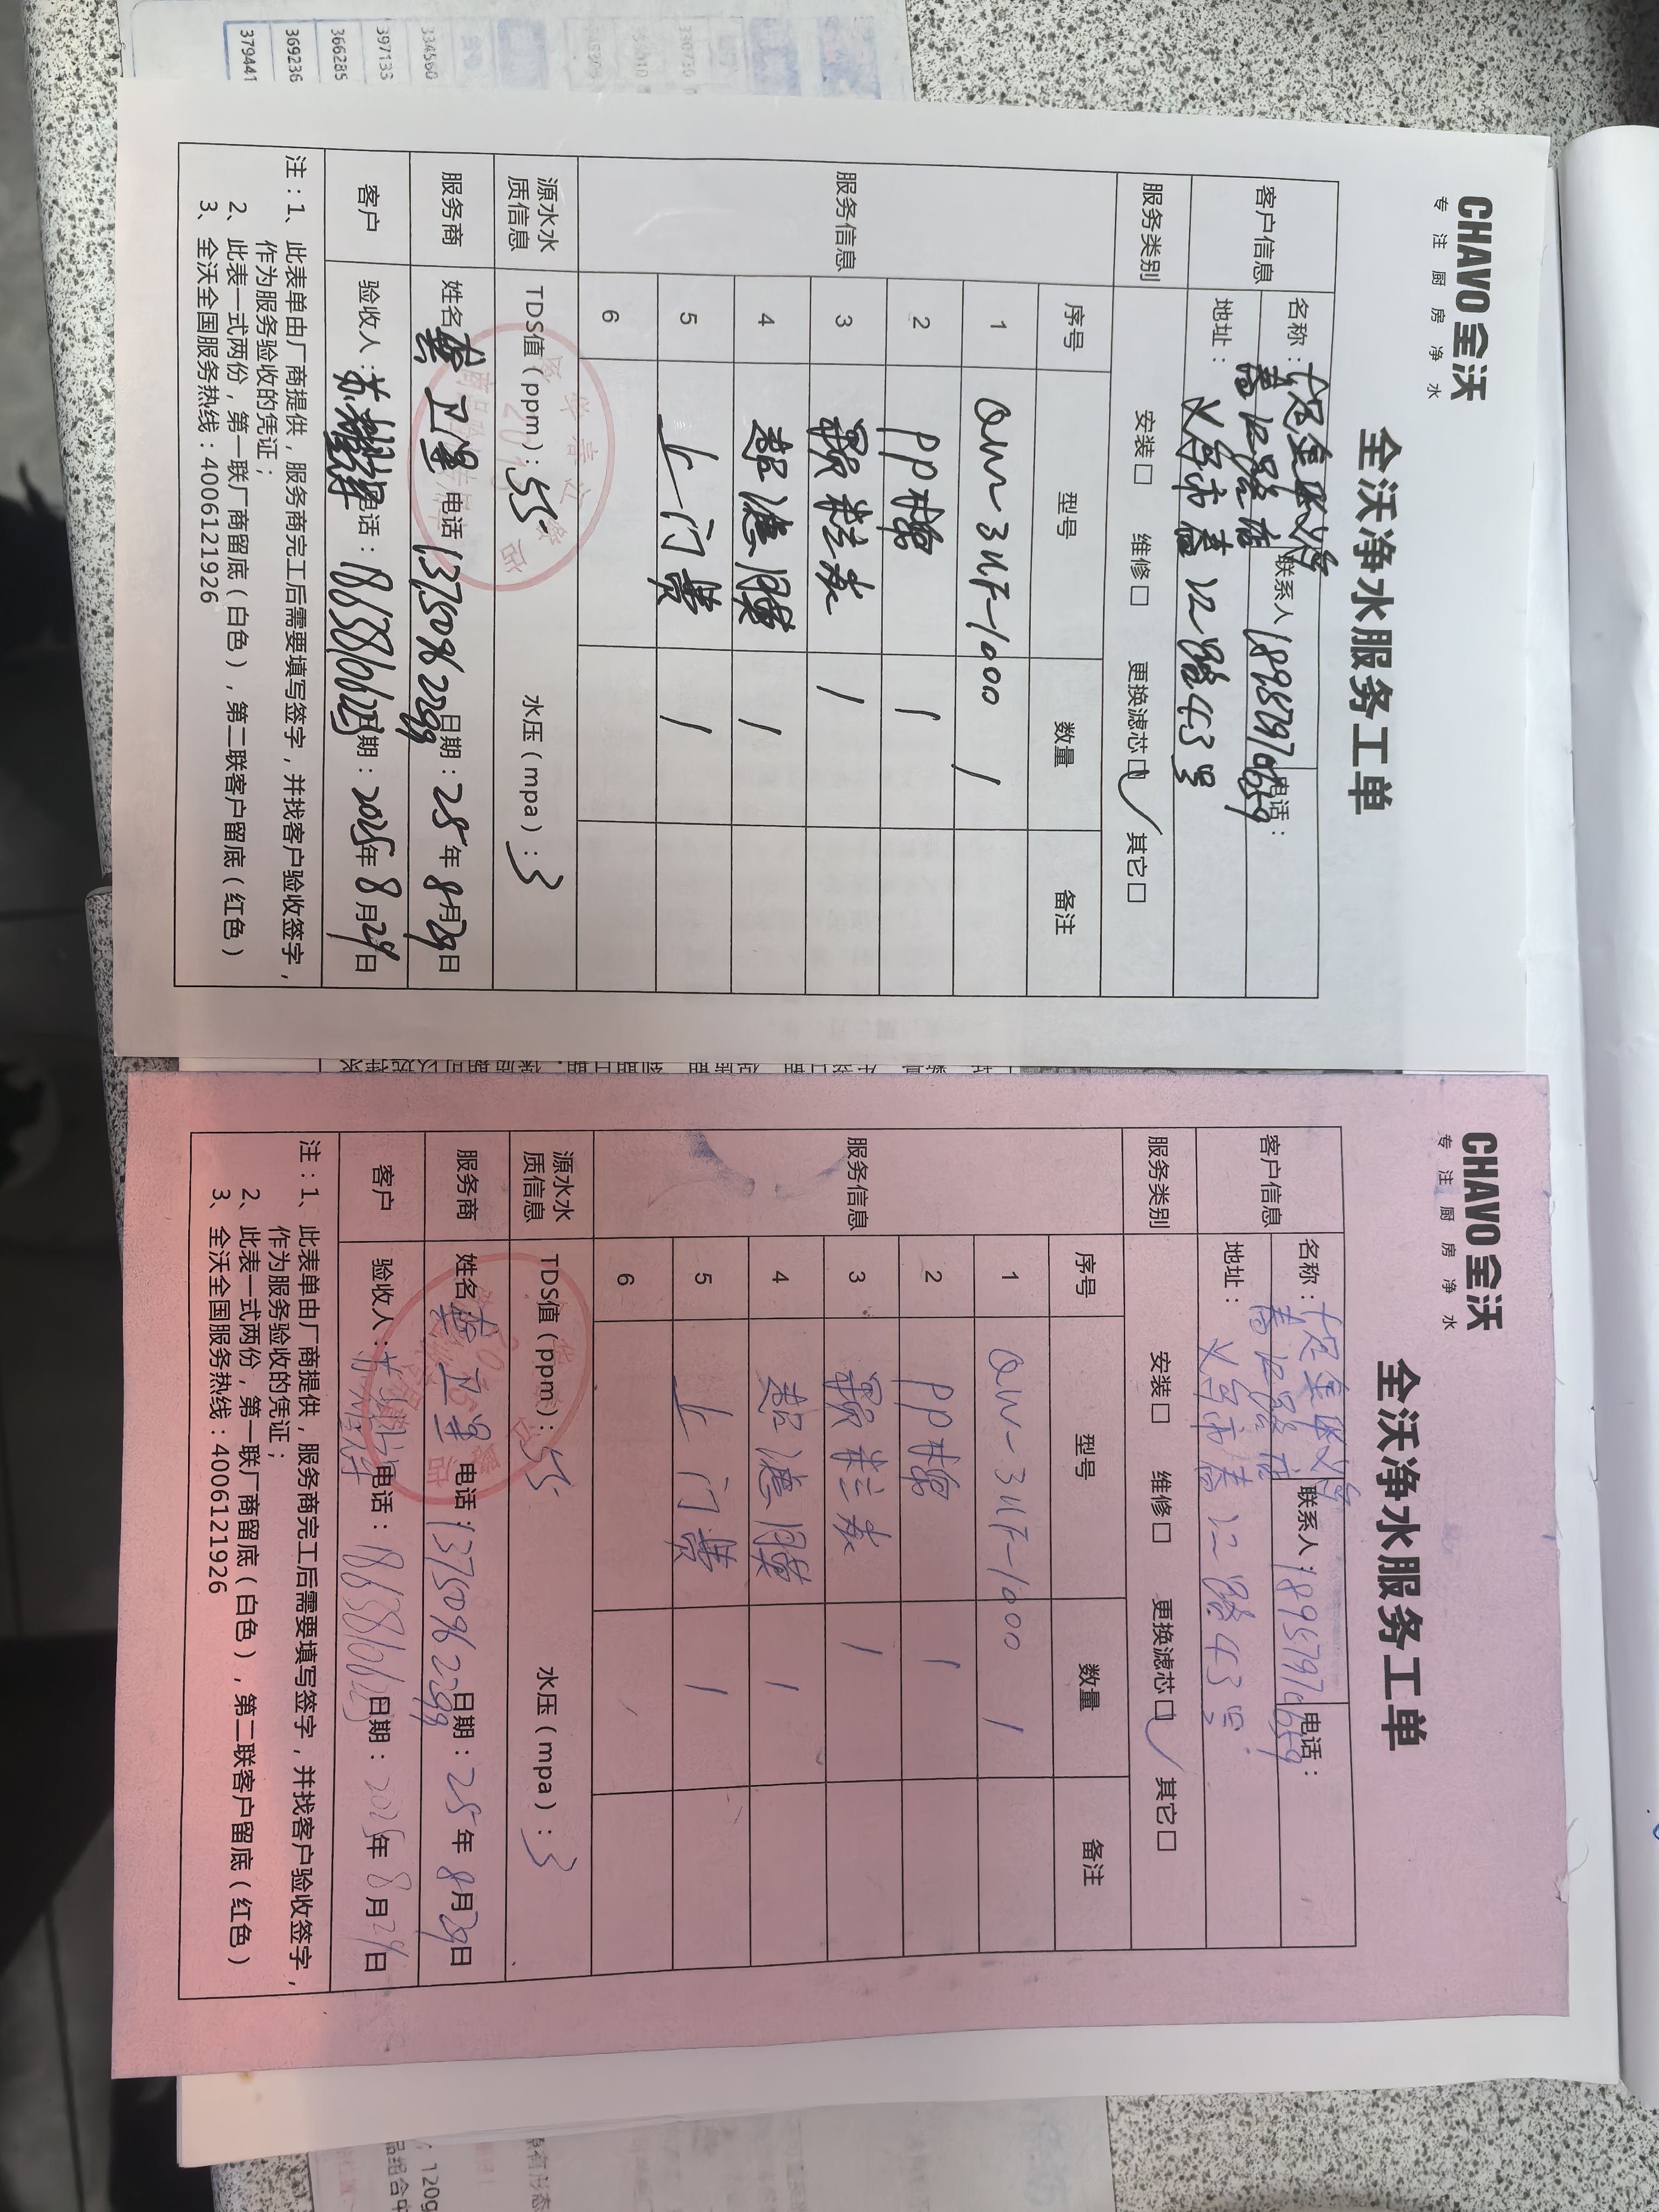 CHAVO 全沃
专注厨房净水
全沃净水服务工单
客户信息
名称：
春江路店
联系人
电话：
地址：义乌市春江路43号
服务类别
安装□ 维修□ 更换滤芯□✓ 其它□
服务信息
序号 型号 数量 备注
1 QW-3UF-1000 1
2 PP棉 1
3 颗粒炭 1
4 超滤膜 1
5 上门费 1
6
源水水质信息
TDS值（ppm）：55 水压（mpa）：3
服务商
姓名 电话 日期：25年8月29日
客户
验收人： 电话： 日期：2025年8月29日
注：1、此表单由厂商提供，服务商完工后需要填写签字，并找客户验收签字，
作为服务验收的凭证；
2、此表一式两份，第一联厂商留底（白色），第二联客户留底（红色）
3、全沃全国服务热线：4006121926
CHAVO 全沃
专注厨房净水
全沃净水服务工单
客户信息
名称：
春江路店
联系人：
电话：
地址：义乌市春江路43号
服务类别
安装□ 维修□ 更换滤芯□✓ 其它□
服务信息
序号 型号 数量 备注
1 QW-3UF-1000 1
2 PP棉 1
3 颗粒炭 1
4 超滤膜 1
5 上门费 1
6
源水水质信息
TDS值（ppm）：55 水压（mpa）：3
服务商
姓名： 电话： 日期：25年8月29日
客户
验收人： 电话： 日期：2025年8月29日
注：1、此表单由厂商提供，服务商完工后需要填写签字，并找客户验收签字，
作为服务验收的凭证；
2、此表一式两份，第一联厂商留底（白色），第二联客户留底（红色）
3、全沃全国服务热线：4006121926
334560
397133
366285
369236
379441